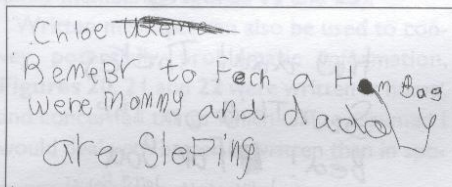 Chloe
RemeBr to Fech a Ham Bag
were mommy and dado
are SlePing